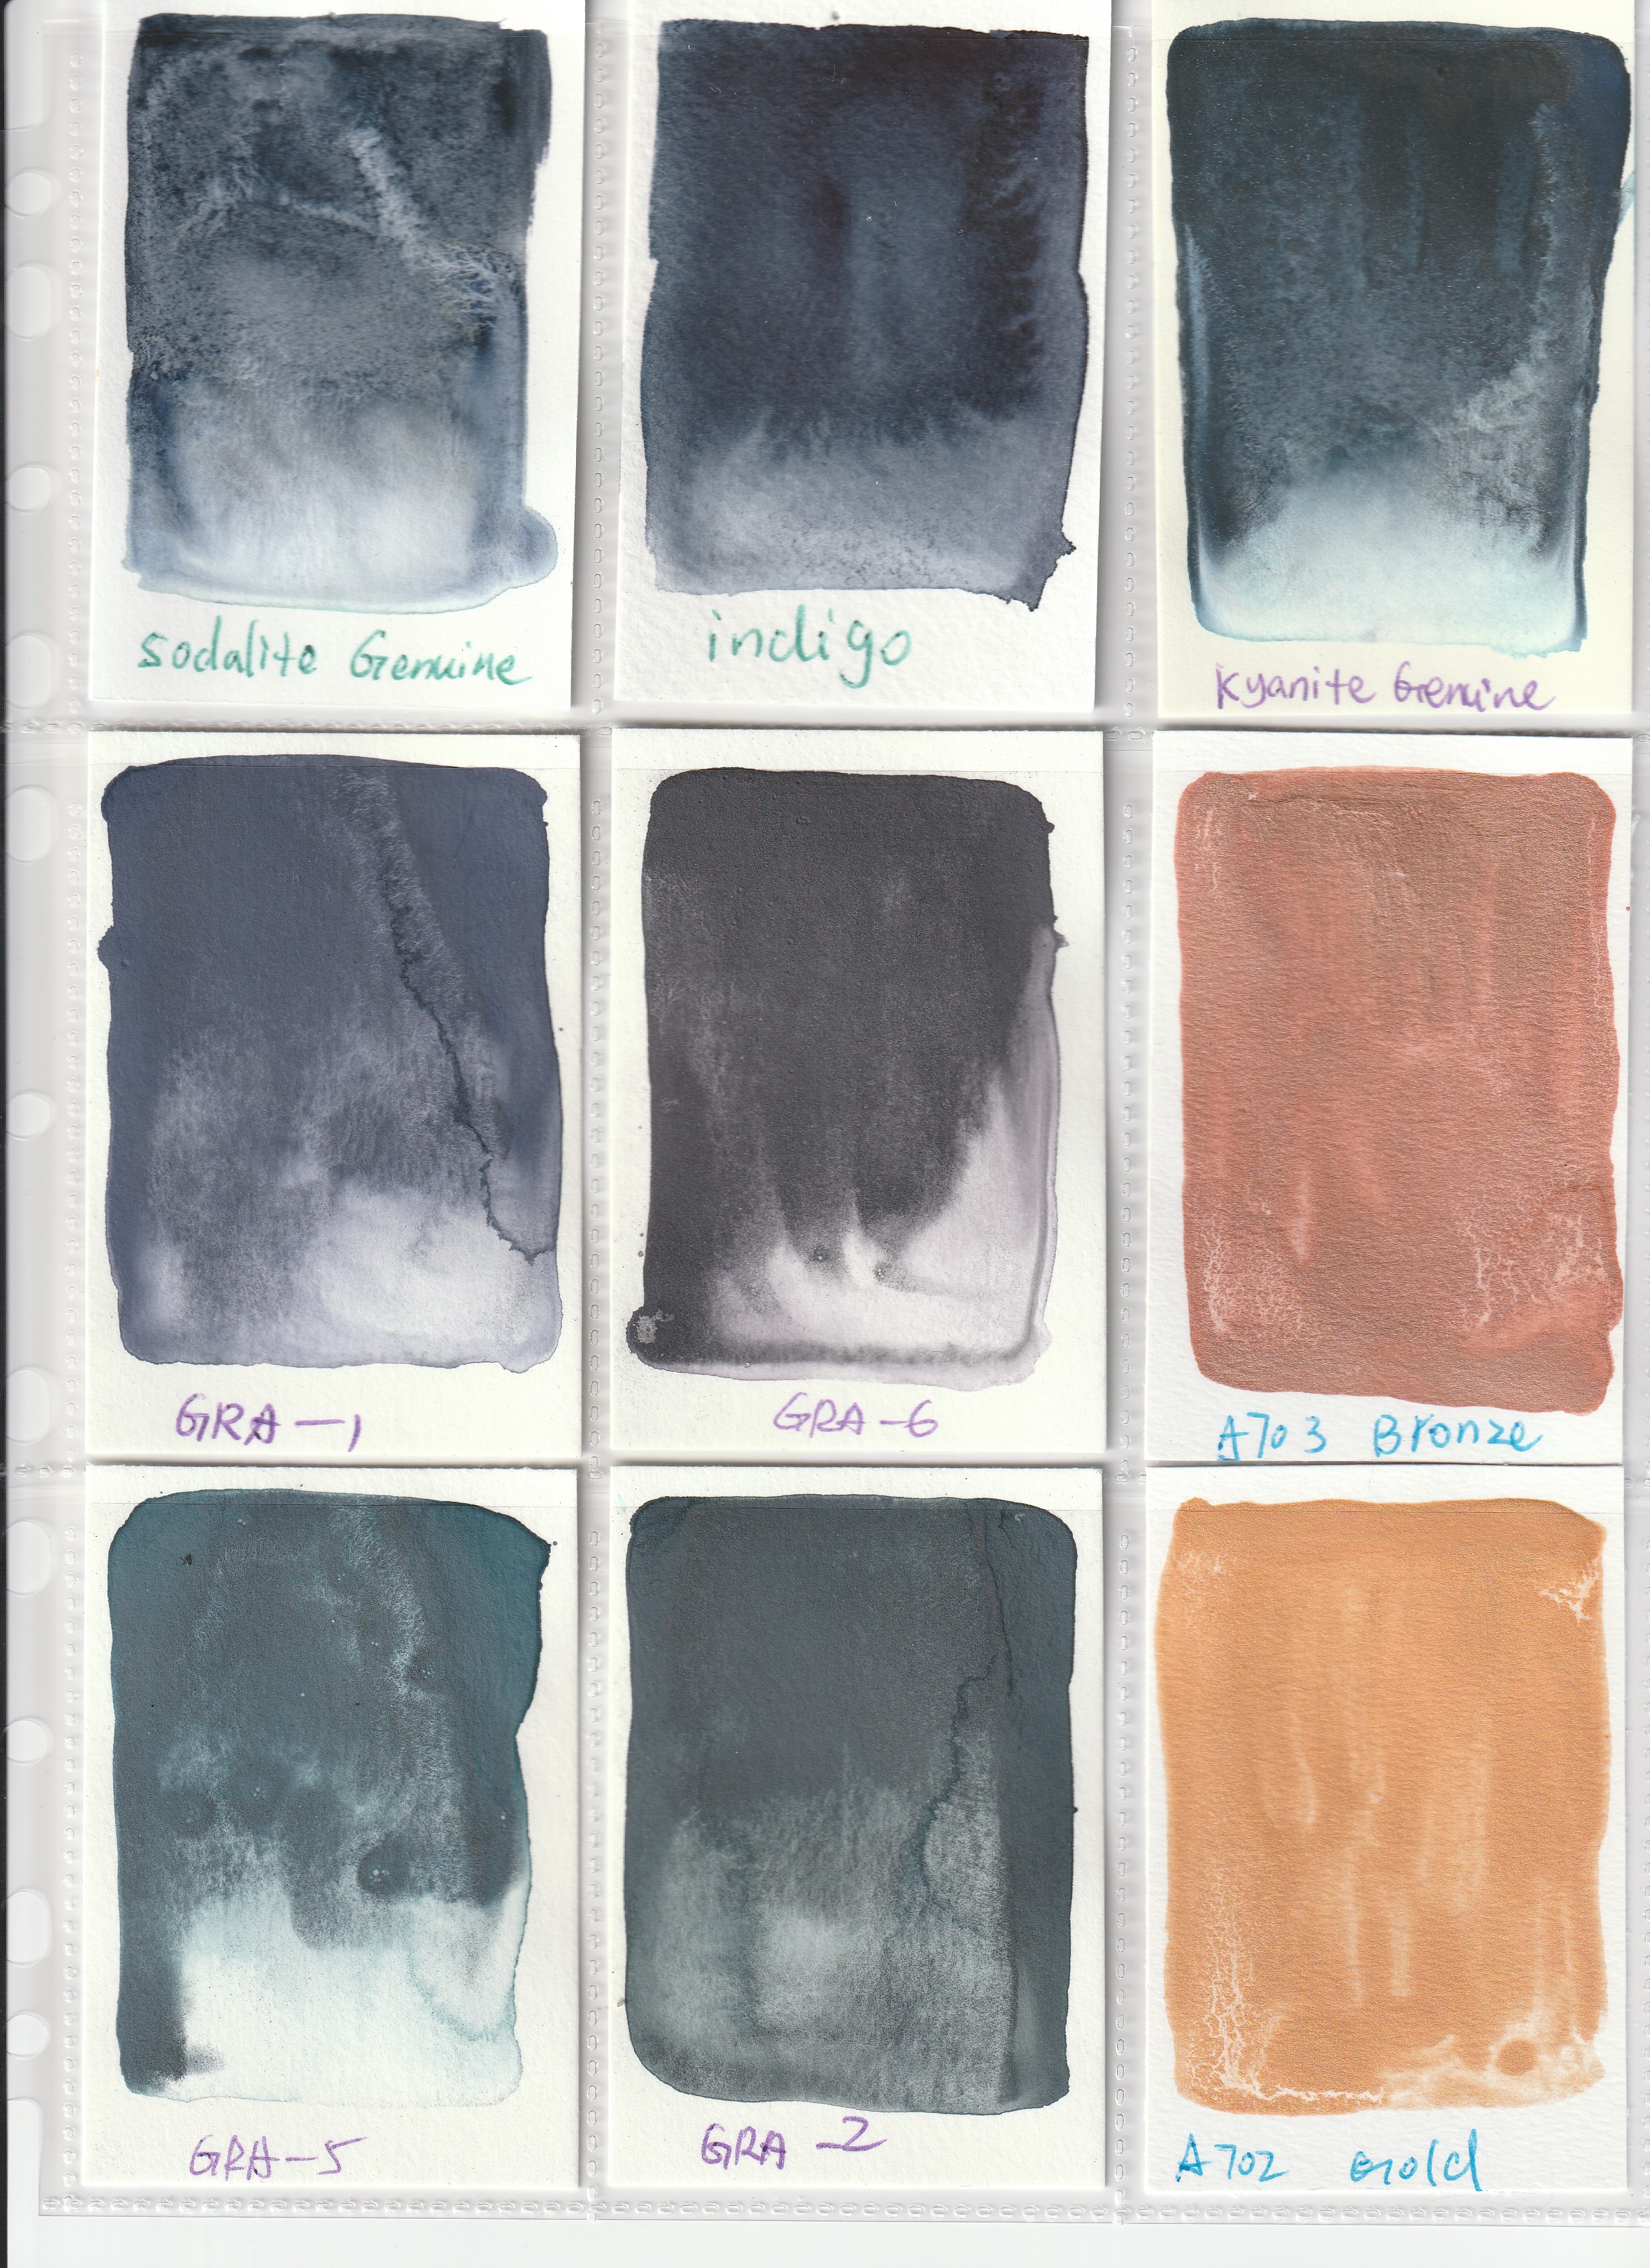 sodalite Genuine
indigo
Kyanite Genuine
GRA-1
GRA-6
A703 Bronze
GRA-5
GRA-2
A702 Gold